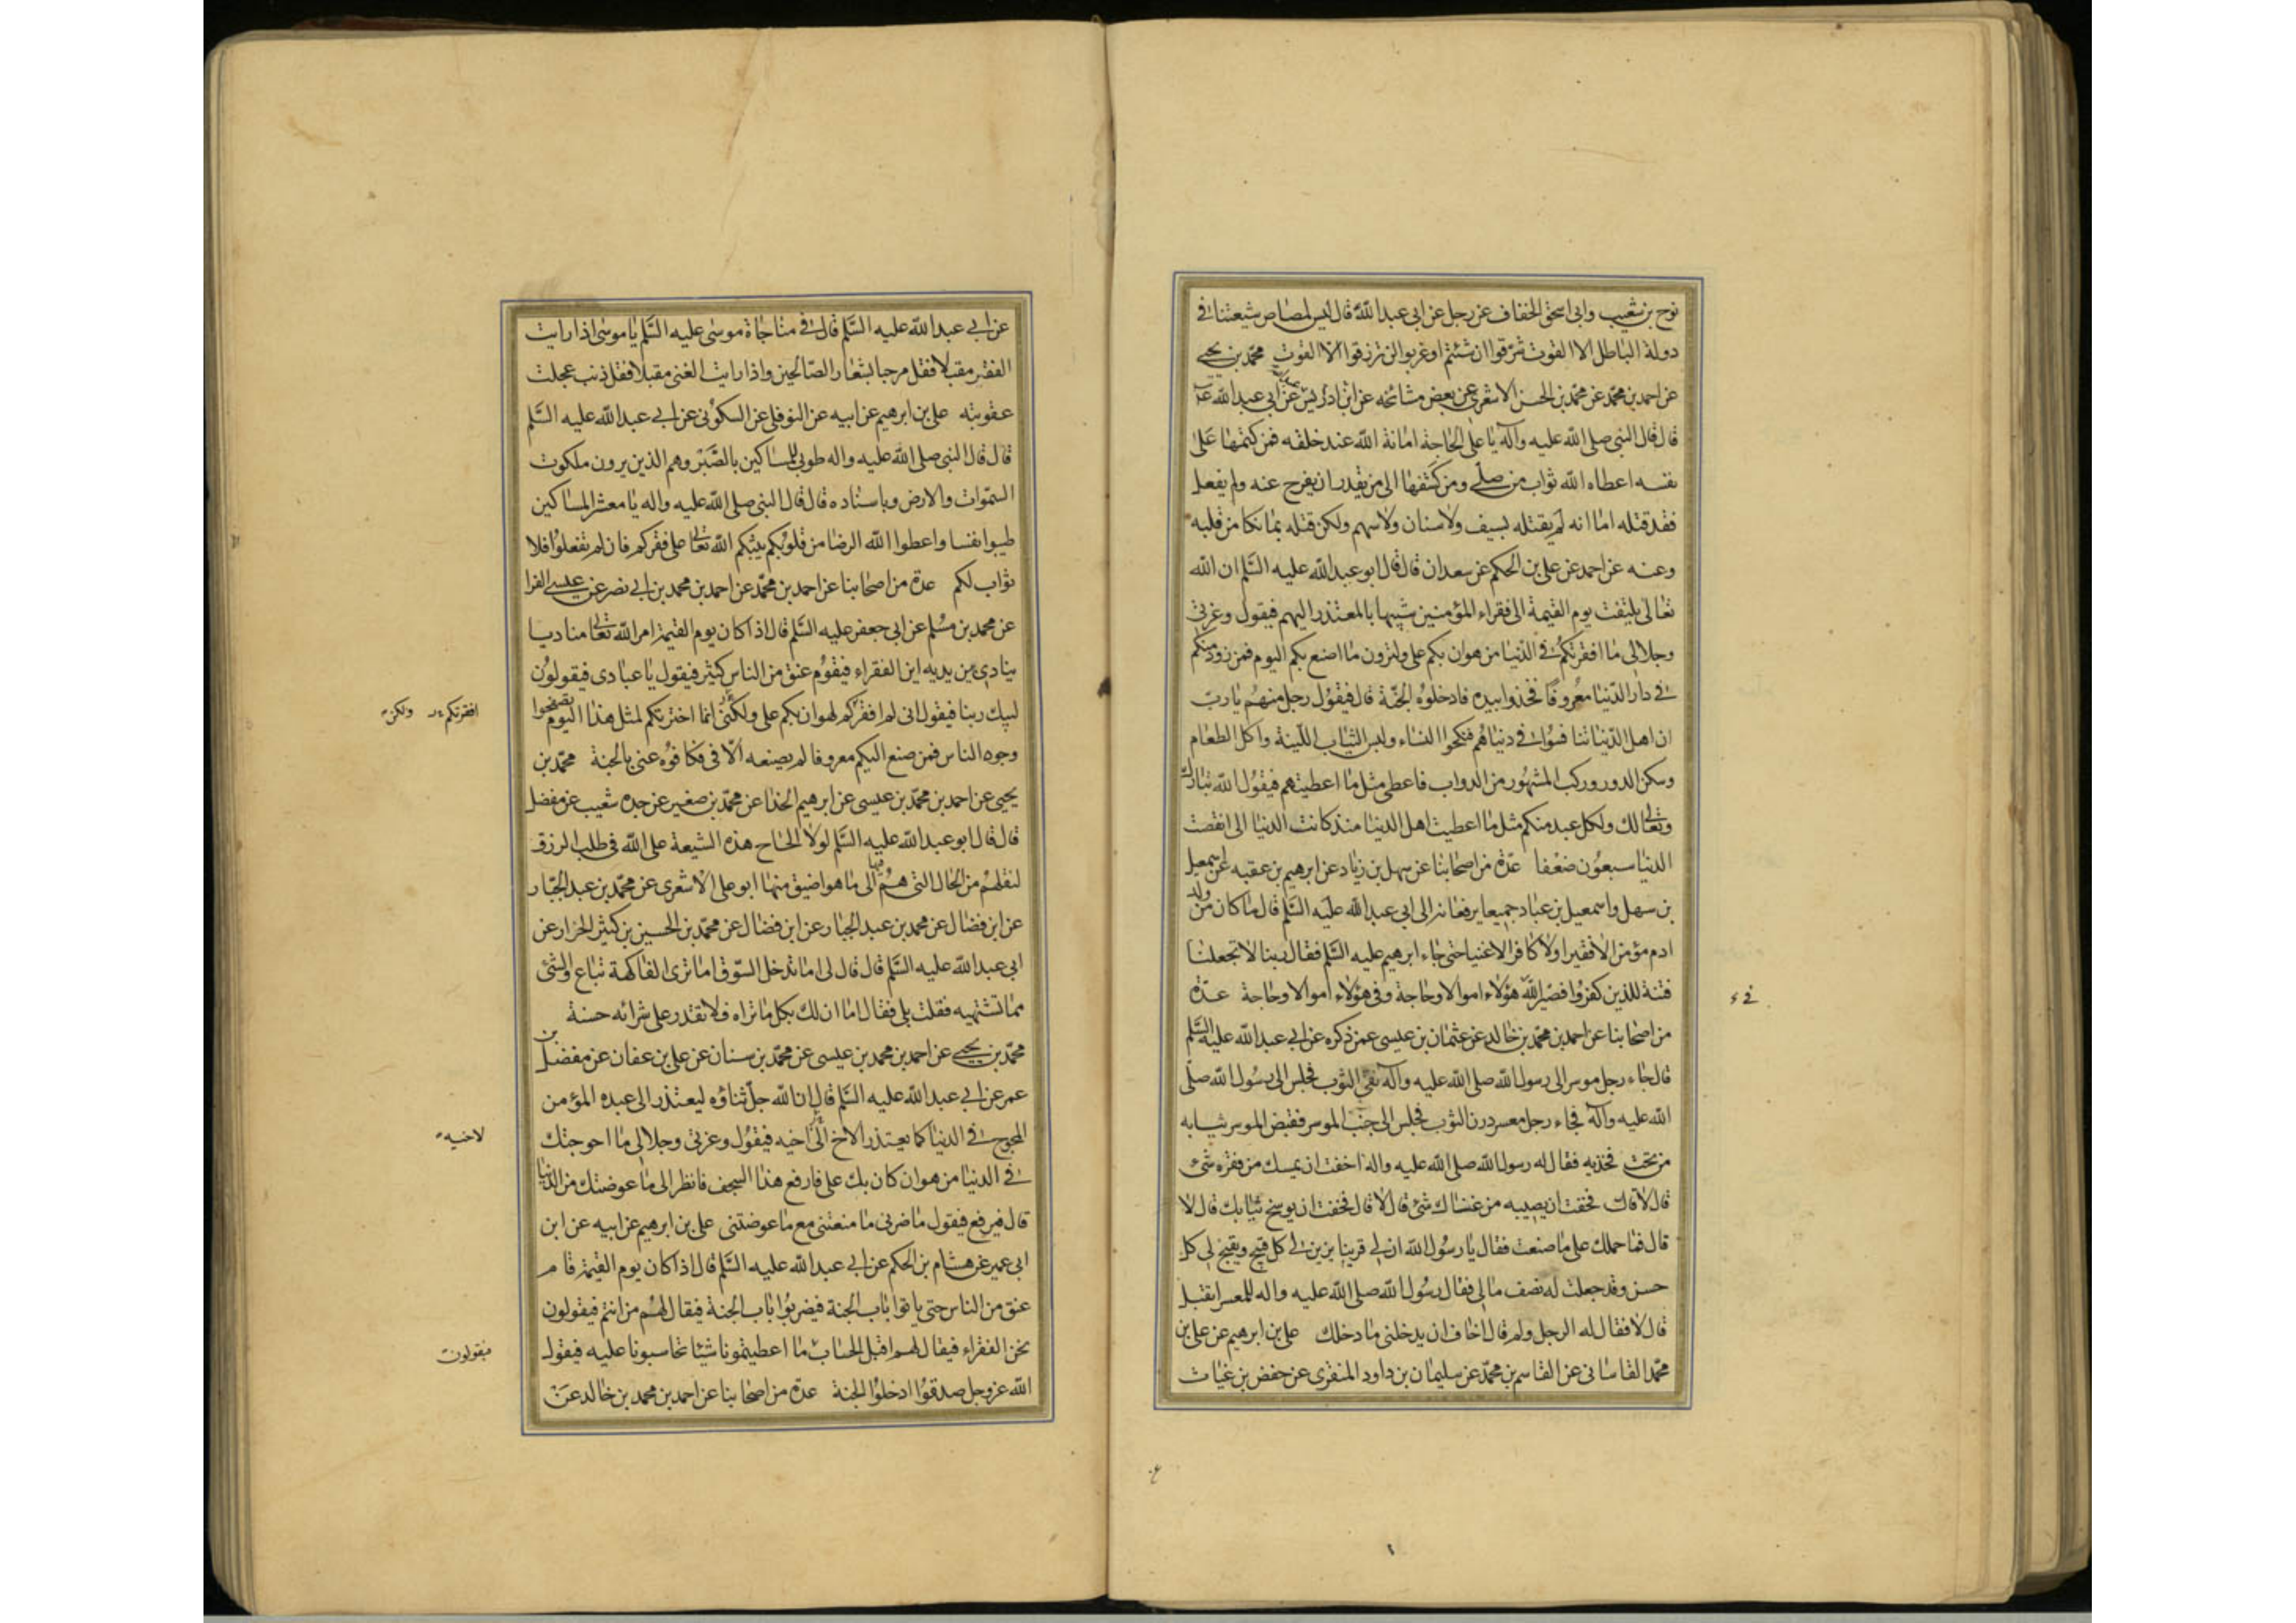 نوح بن شعيب وابي اسحق الخفاف عن رجل عن ابي عبد الله قال ليس لمصاص شيعتنا في
دولة الباطل الا القوت شرقوا ان شئتم او غربوا لن ترزقوا الا القوت محمد بن يحيى
عن احمد بن محمد عن محمد بن الحسن الاشعري عن بعض مشائخه عن ادريس عن ابي عبد الله عليه
قال قال النبي صلى الله عليه وآله يا علي الحاجة امانة الله عند خلقه فمن كتمها على
نفسه اعطاه الله ثواب من صلى ومن كشفها الى من يقدر ان يفرج عنه ولم يفعل
فقد قتله اما انه لم يقتله بسيف ولا سنان ولا سهم ولكن قتله بما نكا من قلبه
وعنه عن احمد عن علي بن الحكم عن سعدان قال قال ابو عبد الله عليه السلم ان الله
تعالى يلتفت يوم القيمة الى فقراء المؤمنين شبيها بالمعتذر اليهم فيقول وعزتي
وجلالي ما افقرتكم في الدنيا من هوان بكم علي ولترون ما اصنع بكم اليوم فمن زود منكم
في دار الدنيا معروفا فخذوا بيده فادخلوه الجنة قال فيقول رجل منهم يا رب
ان اهل الدنيا تنافسوا في دنياهم فنكحوا النساء ولبس الثياب اللينة واكل الطعام
وسكن الدور وركب المشهور من الدواب فاعطى مثل ما اعطيتهم فيقول الله تبارك
وتعالى لك ولكل عبد منكم مثل ما اعطيت اهل الدنيا منذ كانت الدنيا الى انقضت
الدنيا سبعون ضعفا عدة من اصحابنا عن سهل بن زياد عن ابرهيم بن عقبه عن اسمعيل
بن سهل واسمعيل بن عباد جميعا يرفعانه الى ابي عبد الله عليه السلم قال ما كان من ولد
ادم مؤمن الا فقيرا ولا كافر الا غنيا حتى جاء ابرهيم عليه السلم فقال ربنا لا تجعلنا
فتنة للذين كفروا فصير الله هؤلاء اموالا وحاجة وفي هؤلاء اموالا وحاجة عدة
في
من اصحابنا عن احمد بن محمد بن خالد عن عثمان بن عيسى عمن ذكره عن ابي عبد الله عليه السلم
قال جاء رجل موسر الى رسول الله صلى الله عليه وآله نقي الثوب فجلس الى رسول الله صلى
الله عليه وآله فجاء رجل معسر درن الثوب فجلس الى جنب الموسر فقبض الموسر ثيابه
من تحت فخذيه فقال له رسول الله صلى الله عليه واله اخفت ان يمسك من فقره شئ
قال لا قال فخفت ان يصيبه من غناك شئ قال لا قال فخفت ان يوسخ ثيابك قال لا
قال فما حملك على ما صنعت فقال يا رسول الله ان لي قرينا يزين لي كل قبيح ويقبح لي كل
حسن وقد جعلت له نصف مالي فقال رسول الله صلى الله عليه واله للمعسر اتقبل
قال لا فقال له الرجل ولم قال اخاف ان يدخلني ما دخلك علي بن ابرهيم عن علي بن
محمد القاساني عن القاسم بن محمد عن سليمان بن داود المنقري عن حفص بن غياث
عن ابي عبد الله عليه السلم قال في مناجاة موسى عليه السلم يا موسى اذا رايت
الفقر مقبلا فقل مرحبا بشعار الصالحين واذا رايت الغنى مقبلا فقل ذنب عجلت
عقوبته علي بن ابرهيم عن ابيه عن النوفلي عن السكوني عن ابي عبد الله عليه السلم
قال قال النبي صلى الله عليه واله طوبى للمساكين بالصبر وهم الذين يرون ملكوت
السموات والارض وباسناده قال قال النبي صلى الله عليه واله يا معشر المساكين
طيبوا نفسا واعطوا الله الرضا من قلوبكم يثبكم الله تعالى على فقركم فان لم تفعلوا فلا
ثواب لكم عدة من اصحابنا عن احمد بن محمد عن احمد بن محمد بن ابي نصر عن عيسى الفرا
عن محمد بن مسلم عن ابي جعفر عليه السلم قال اذا كان يوم القيمة امر الله تعالى مناديا
ينادي بين يديه اين الفقراء فيقوم عنق من الناس كثير فيقول يا عبادي فيقولون
لبيك ربنا فيقول اني لم افقركم لهوان بكم علي ولكني انما اخترتكم لمثل هذا اليوم تصفحوا
افقرتكم ولكن
وجوه الناس فمن صنع اليكم معروفا لم يصنعه الا في فكافوه عني بالجنة محمد بن
يحيى عن احمد بن محمد بن عيسى عن ابرهيم الحذا عن محمد بن صغير عن جده شعيب عن مفضل
قال قال ابو عبد الله عليه السلم لولا الحاح هذه الشيعة على الله في طلب الرزق
لنقلهم من الحال التي هم فيها الى ما هو اضيق منها ابو علي الاشعري عن محمد بن عبد الجبار
عن ابن فضال عن محمد بن عبد الجبار عن ابن فضال عن محمد بن الحسين بن كثير الخزاز عن
ابي عبد الله عليه السلم قال قال لي اما تدخل السوق اما ترى الفاكهة تباع والشئ
مما تشتهيه فقلت بلى فقال اما ان لك بكل ما تراه فلا تقدر على شرائه حسنة
محمد بن يحيى عن احمد بن محمد بن عيسى عن محمد بن سنان عن علي بن عفان عن مفضل بن
عمر عن ابي عبد الله عليه السلم قال ان الله جل ثناؤه ليعتذر الى عبده المؤمن
المحوج في الدنيا كما يعتذر الاخ الى اخيه فيقول وعزتي وجلالي ما احوجتك
لاخيه
في الدنيا من هوان كان بك علي فارفع هذا السجف فانظر الى ما عوضتك من الدنيا
قال فيرفع فيقول ما ضرني ما منعتني مع ما عوضتني علي بن ابرهيم عن ابيه عن ابن
ابي عمير عن هشام بن الحكم عن ابي عبد الله عليه السلم قال اذا كان يوم القيمة قام
عنق من الناس حتى ياتوا باب الجنة فيضربوا باب الجنة فيقال لهم من انتم فيقولون
نحن الفقراء فيقال لهم اقبل الحساب ما اعطيتمونا شيئا تحاسبونا عليه فيقول
فيقولون
الله عز وجل صدقوا ادخلوا الجنة عدة من اصحابنا عن احمد بن محمد بن خالد عن